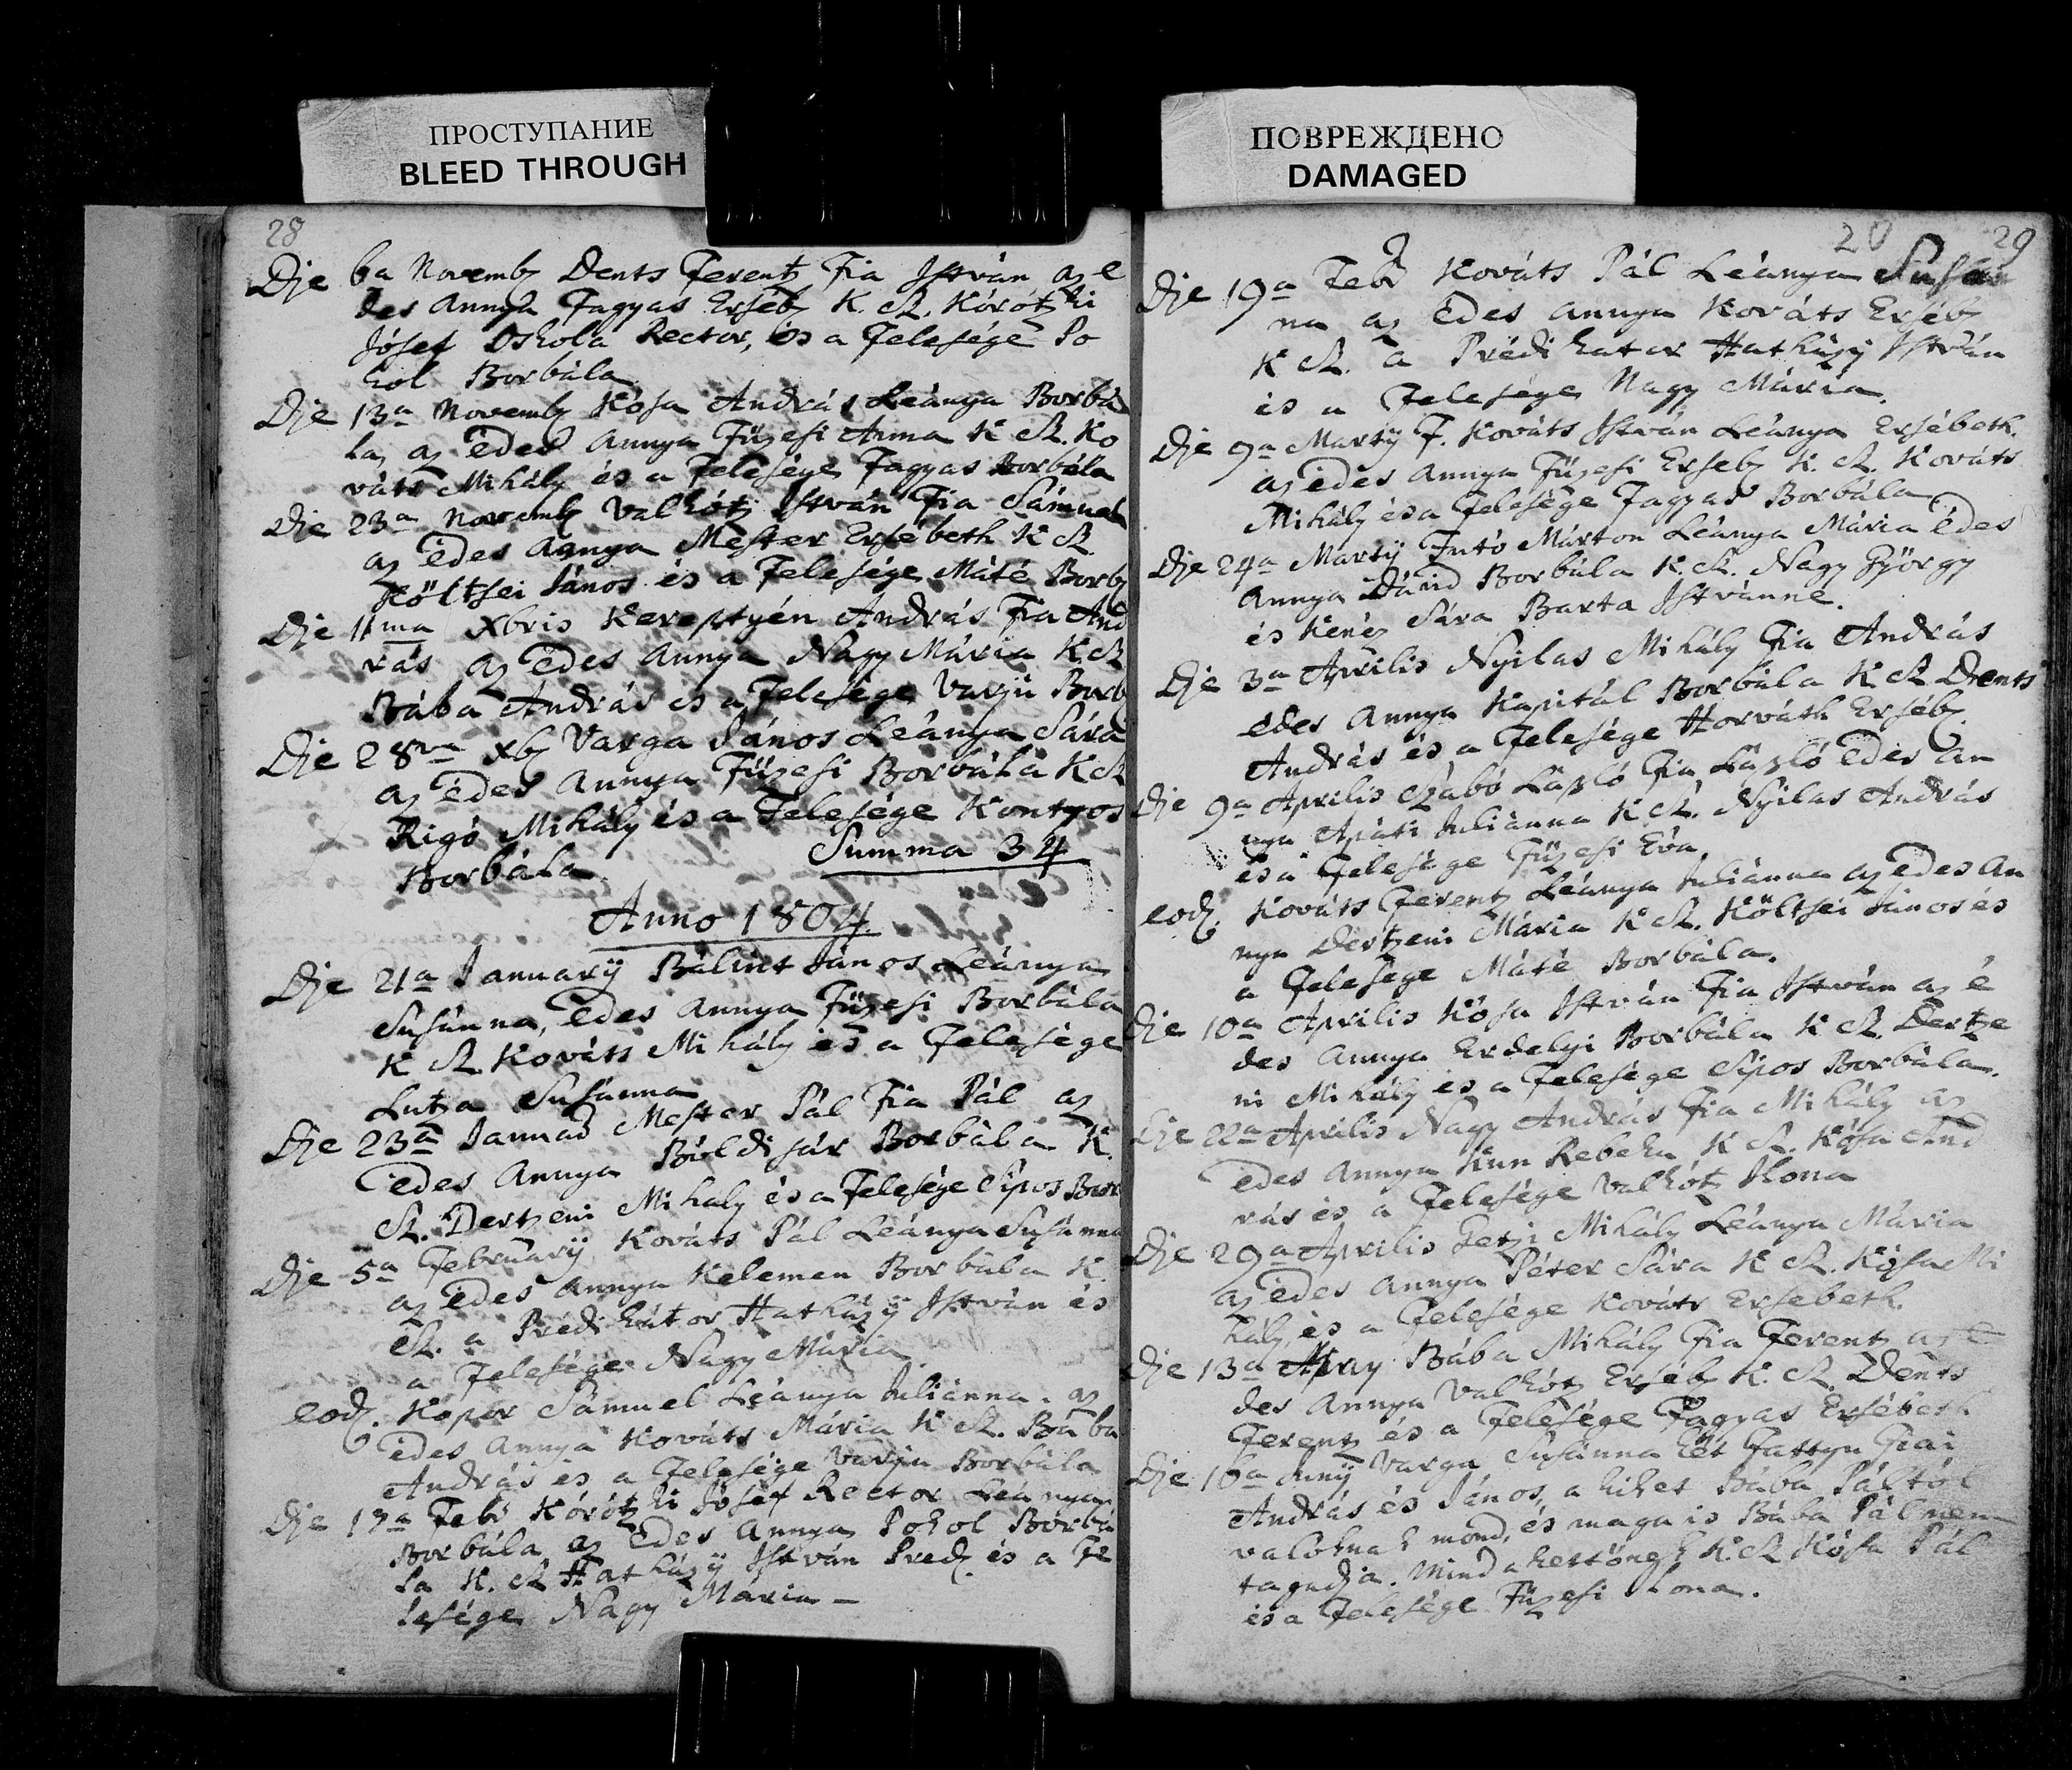 ПРОСТУПАНИЕ
BLEED THROUGH
28
Die 6a Novemb Dents Ferentz Fia István az e
des Annya Fagyas Erseb K. SZ. Kórótzki
Jósef Oskola Rector, és a Felesége Po
kol Borbála
Die 13a Novemb Kósa András Leánya Borbá
la, az édes Annya Füzesi Anna K SZ. Ko
váts Mihály és a Felesége Fagyas Borbála
Die 23a Novemb Valkótz István Fia Sámuel
az édes Annya Mester Ersébeth K SZ
Költsei János és a Felesége Máté Borb
Die 11ma Xbris Keresztyén András Fia And
rás az édes Annya Nagy Mária K. SZ
Bába András és a Felesége Varju Borb
Die 28va Xb Varga János Leánya Sára
az édes Annya Füzesi Borbála K SZ
Rigó Mihály és a Felesége Kontyos
Borbála Summa 34
Anno 1804
Die 21a Januarij Bálint János Leánya
Susánna, édes Annya Füzesi Borbála
K SZ. Kováts Mihály és a Felesége
Lutza Susánna
Die 23a Januar Mester Pál Fia Pál az
édes Annya Bóldisár Borbála K.
SZ. Dertzeni Mihaly és a Felesége Sipos Bor
Die 5a Februarij Kováts Pál Leánya Susánna
az édes Annya Kelemen Borbála K.
SZ. a Prédikátor Hatházij István és
a Felesége Nagy Mária
eod. Kopor Sámuel Leánya Juliánna. az
édes Annya Kováts Mária K SZ. Bába
András és a Felesége Varju Borbála
Die 17a Febr Kórótzki Jósef Rector Leánya
Borbála az édes Annya Pokol Borbá
la K. SZ Hatházij István Pred. és a Fe
lesége Nagy Mária –
ПОВРЕЖДЕНО
DAMAGED
29
Die 19a Febr Kováts Pál Leánya Susán
na az édes Annya Kováts Erséb
K SZ. a Prédikator Hatházij István
és a Felesége Nagy Mária.
Die 9a Martij F. Kováts István Leánya Ersébeth.
az édes Annya Füzesi Erseb K. SZ. Kováts
Mihály és a Felesége Fagyas Borbála
Die 24a Martij Futó Márton Leánya Mária édes
Annya Dávid Borbála K. SZ. Nagy György
és Kenéz Sára Barta Istvánne.
Die 3a Aprilis Nyilas Mihály Fia András
édes Annya Kapitál Borbála K SZ Dents
András és a Felesége Horváth Erséb
Die 9a Aprilis Szabó László Fia László édes An
nya Apáti Juliánna K SZ. Nyilas András
és a Felesége Füzesi Éva
eod. Kováts Ferentz Leánya Juliánna az édes An
nya Dertzeni Mária K SZ. Költsei János és
a Felesége Máté Borbála.
Die 10a Aprilis Kósa István Fia István az é
des Annya Erdelyi Borbála K SZ. Dertze
ni Mihály és a Felesége Sipos Borbála.
Die 22a Aprilis Nagy András Fia Mihály az
édes Annya Kun Rebeka K SZ. Kósa And
rás és a Felesége Valkótz Ilona
Die 29a Aprilis Getzi Mihály Leánya Mária
az édes Annya Péter Sára K SZ. Kósa Mi
hály és a Felesége Kováts Ersebeth.
Die 13a May Bába Mihály Fia Ferentz az é
des Annya Valkótz Erséb K. SZ. Dents
Ferentz és a Felesége Fagyas Ersébeth
Die 16a Junij Varga Susánna két Fattyu Fiai
András és János, a kiket Bába Páltól
valóknak mond, és maga is Bába Pál nem
tagadja. Mind a kettőnek K. SZ Kósa Pál
és a Felesége Füzesi Ilona.